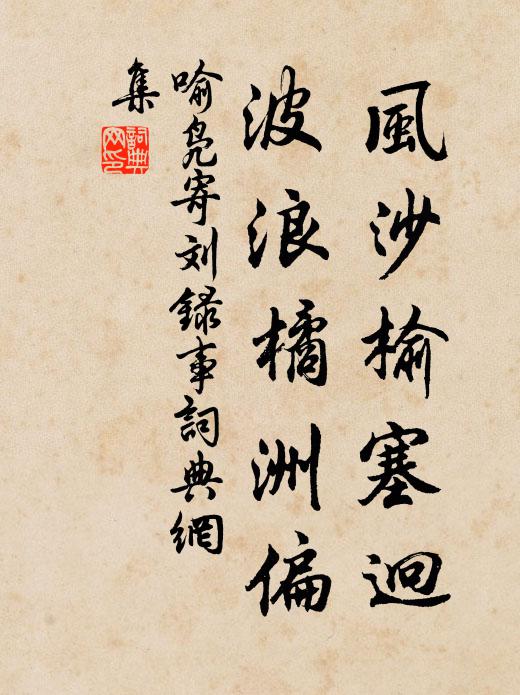 風沙榆塞迥
波浪橘洲偏
喻凫寄刘錄事詞典網
集
詞典网印